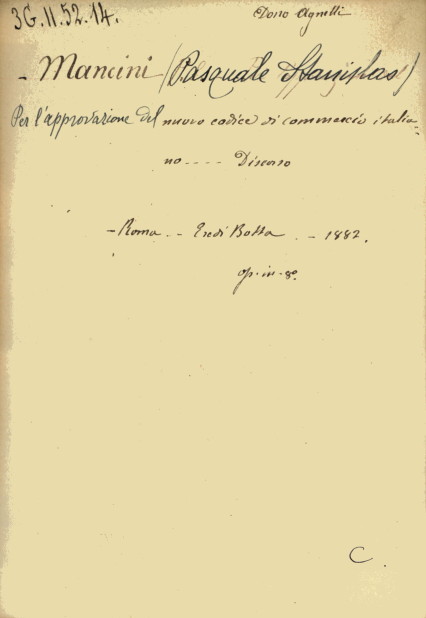 3G.11.52.14.
Dono Agnelli
- Mancini (Pasquale Stanislao)
Per l'approvazione del nuovo codice di commercio italia-
no---- Discorso
- Roma - - Eredi Botta - - 1882.
op. in-8º.
C.